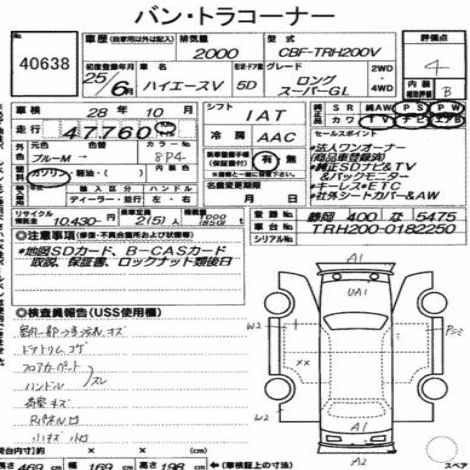 バン・トラコーナー
40638
車歴 (自家用以外は記入) 排気量 2000 型式 CBF-TRH200V 評価点 4
初度登録年月 25/6月 車名 ハイエースV 形状・ドア数 5D グレード ロング スーパーGL 2WD・4WD 内装 補助評価 B
車検 28年 10月 シフト IAT 純正品 SR 純AW PS PW
カワ TV ナビ エアB
走行 47760 冷房 AAC
セールスポイント
外色 元色 色替 カラーNo. 内装色
ブルーM→ 8P4
乗車整備手帳 (保証書付) 有・無
*法人ワンオーナー
(商品車登録済)
*純正SDナビ&TV
&バックモニター
*キーレス*ETC
*社外シートカバー&AW
燃料 ガソリン・軽油・( )
名義変更期限 月 日
年式 輸入区分 ハンドル
ディーラー・並行 左・右
リサイクル 10,430-円 乗車定員 2(5)人 積載量 1000(850)K
登録No. 静岡 400 な 5475
車台No. TRH200-0182250
シリアルNo.
◎注意事項 (修復・不具合箇所および状態等)
*地図SDカード、B-CASカード
取説、保証書、ロックナット類後日
◎検査員報告 (USS使用欄)
ドアトリムコゲ
フロアカーペット
ハンドル スレ
荷室キズ
A1
UA1
W2
W2
××
A1
A2
荷台内寸 × × (cm)
長さ 469 cm 幅 169 cm 高さ 198 cm ←(車検証上の寸法)
スペア